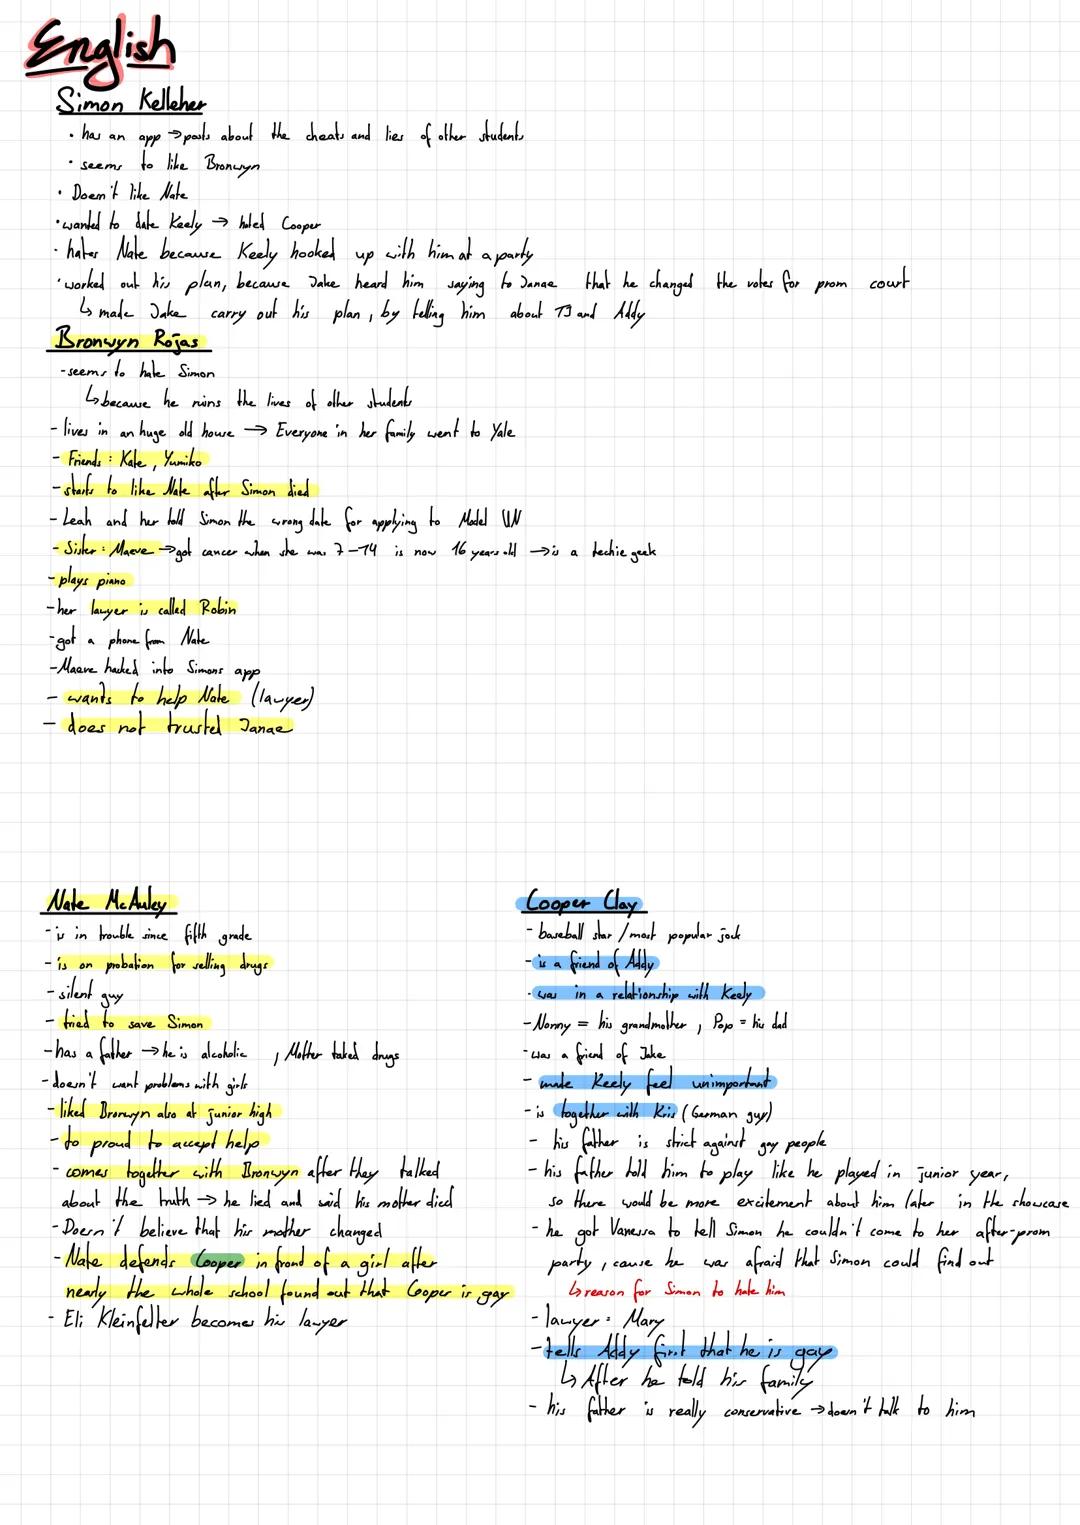 English
Simon Kelleher
• has an app → posts about the cheats and lies of other students
• seems to like Bronwyn
• Doesn't like Nate
• wanted to date Keely → hated Cooper
• hates Nate because Keely hooked up with him at a party
• worked out his plan, because Jake heard him saying to Janae that he changed the votes for prom court
↳ made Jake carry out his plan, by telling him about TJ and Addy
Bronwyn Rojas
- seems to hate Simon
↳ because he ruins the lives of other students
- lives in an huge old house → Everyone in her family went to Yale
- Friends: Kate, Yumiko
- starts to like Nate after Simon died
- Leah and her told Simon the wrong date for applying to Model UN
- Sister: Maeve → got cancer when she was 7-14 is now 16 years old → is a techie geek
- plays piano
- her lawyer is called Robin
- got a phone from Nate
- Maeve hacked into Simons app
- wants to help Nate (lawyer)
- does not trusted Janae
Nate McAuley
- is in trouble since fifth grade
- is on probation for selling drugs
- silent guy
- tried to save Simon
- has a father → he is alcoholic, Mother taked drugs
- doesn't want problems with girls
- liked Bronwyn also at junior high
- to proud to accept help
- comes together with Bronwyn after they talked
about the truth → he lied and said his mother died
- Doesn't believe that his mother changed
- Nate defends Cooper in frond of a girl after
nearly the whole school found out that Cooper is gay
- Eli Kleinfelter becomes his lawyer
Cooper Clay
- baseball star / most popular jock
- is a friend of Addy
- was in a relationship with Keely
- Nonny = his grandmother, Pop = his dad
- was a friend of Jake
- made Keely feel unimportant
- is together with Kris (German guy)
- his father is strict against gay people
- his father told him to play like he played in junior year,
so there would be more excitement about him later in the showcase
- he got Vanessa to tell Simon he couldn't come to her after-prom
party, cause he was afraid that Simon could find out
↳ reason for Simon to hate him
- lawyer: Mary
- tells Addy first that he is gay
↳ After he told his family
- his father is really conservative → doesn't talk to him